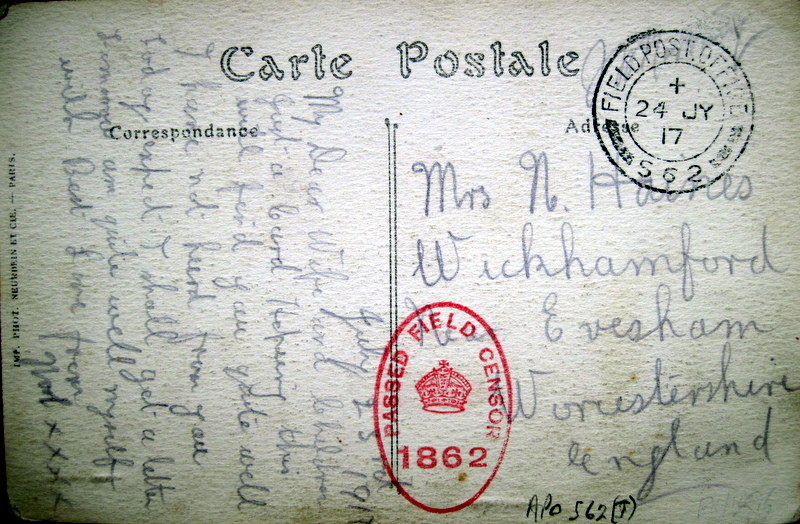 Carte Postale
Correspondance
Adresse
FIELD POST OFFICE
24 JY
17
S 62
July 23rd 1917
My Dear Wife and Children
Just a Card Hoping this
will find you quite well
I have not heard from you
today expect I shall get a letter
am quite well myself
with Best Love from
xxxx
Mrs N. Haines
Wickhamford
Near Evesham
Worcestershire
England
PASSED FIELD CENSOR
1862
APO S62(T)
IMP. PHOT. NEURDEIN ET CIE. — PARIS.